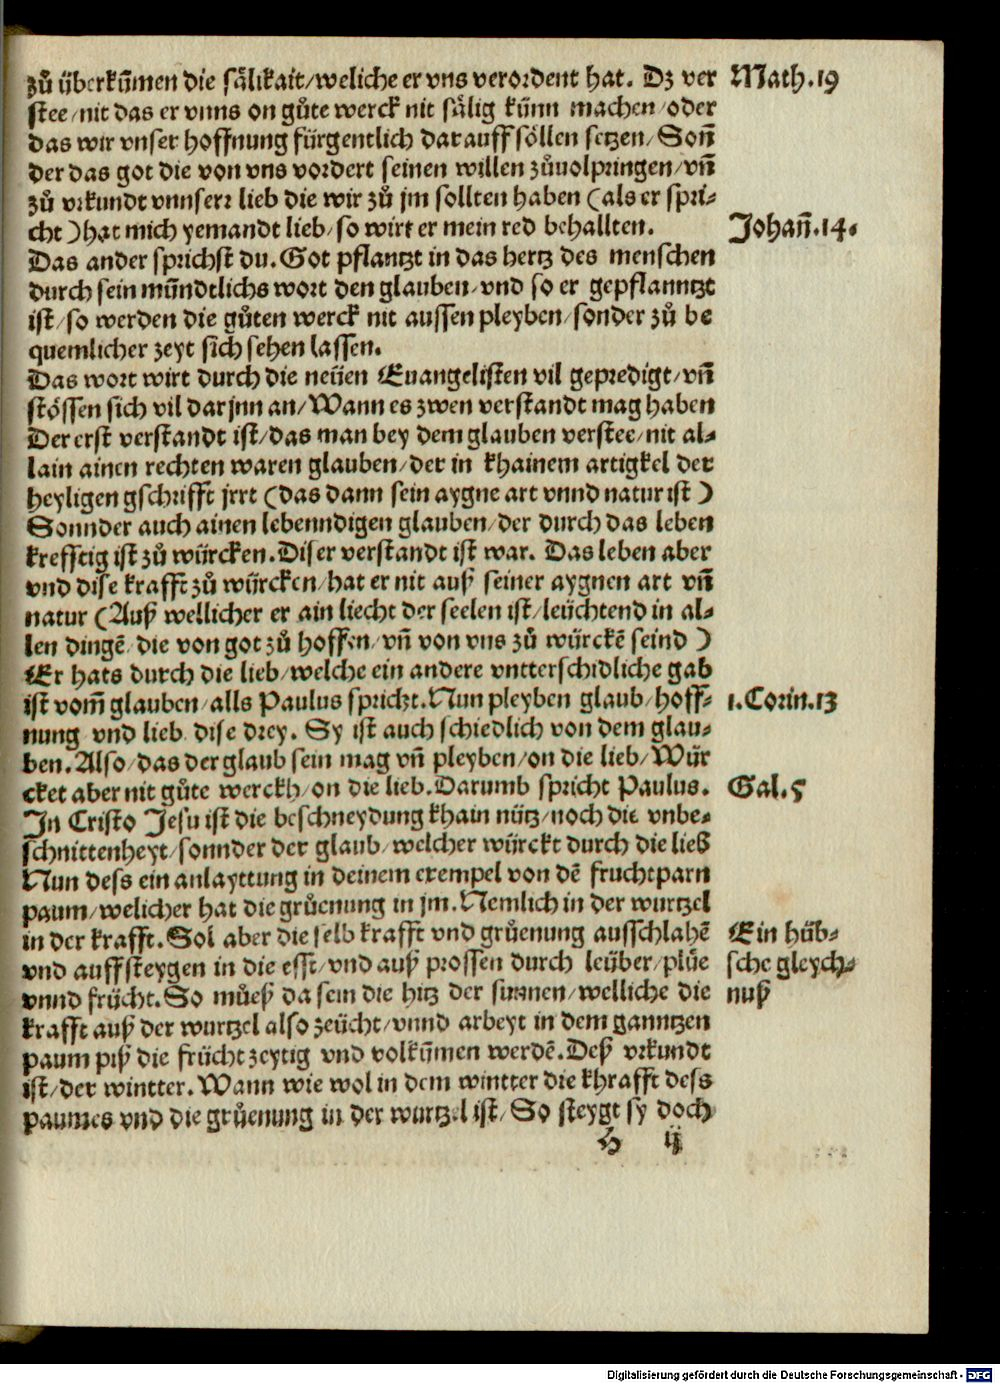 zů überkūmen die sälikait/weliche er vns verordent hat. Dz ver
stee/nit das er vnns on gůte werck nit sälig künn machen/oder
das wir vnser hoffnung fürgentlich darauff söllen setzen/Soñ
der das got die von vns vordert seinen willen zůuolpringen/vñ
zů vrkundt vnnserr lieb die wir zů jm sollten haben (als er spri⸗
cht) hat mich yemandt lieb/so wirt er mein red behallten.
Das ander sprichst du. Got pflantzt in das hertz des menschen
durch sein mūndtlichs wort den glauben/vnd so er gepflanntzt
ist/so werden die gůten werck nit aussen pleyben/sonder zů be
quemlicher zeyt sich sehen lassen.
Das wort wirt durch die neüen Euangelisten vil gepredigt/vñ
stössen sich vil darjnn an/Wann es zwen verstandt mag haben
Der erst verstandt ist/das man bey dem glauben verstee/nit al⸗
lain ainen rechten waren glauben/der in khainem artigkel der
heyligen gschrifft jrrt (das dann sein aygne art vnnd natur ist)
Sonnder auch ainen lebenndigen glauben/der durch das leben
krefftig ist zů würcken. Diser verstandt ist war. Das leben aber
vnd dise krafft zů würcken/hat er nit auß seiner aygnen art vñ
natur (Auß wellicher er ain liecht der seelen ist/leüchtend in al⸗
len dingē/die von got zů hoffen/vñ von vns zů würckē seind)
Er hats durch die lieb/welche ein andere vntterschidliche gab
ist vom̄ glauben/alls Paulus spricht. Nun pleyben glaub/hoff⸗
nung vnd lieb/dise drey. Sy ist auch schiedlich von dem glau⸗
ben. Also/das der glaub sein mag vñ pleyben/on die lieb/Wür
cket aber nit gůte werckh/on die lieb. Darumb spricht Paulus.
In Cristo Jesu ist die beschneydung khain nütz/noch die vnbe⸗
schnittenheyt/sonnder der glaub/welcher würckt durch die lieb
Nun dess ein anlayttung in deinem exempel von dē fruchtparn
paum/welicher hat die grůenung in jm. Nemlich in der wurtzel
in der krafft. Sol aber die selb krafft vnd grůenung ausschlahē
vnd auffsteygen in die esst/vnd auß prossen durch leüber/plůe
vnnd frücht. So můeß da sein die hitz der sunnen/welliche die
krafft auß der wurtzel also zeücht/vnnd arbeyt in dem ganntzen
paum piß die frücht zeytig vnd volkūmen werdē. Deß vrkundt
ist/der wintter. Wann wie wol in dem wintter die khrafft dess
paumes vnd die grůenung in der wurtzel ist/So steygt sy doch
H ij
Math.19
Johañ.14.
1.Corin.13
Gal.5
Ein hüb⸗
sche gleych⸗
nuß
Digitalisierung gefördert durch die Deutsche Forschungsgemeinschaft - DFG